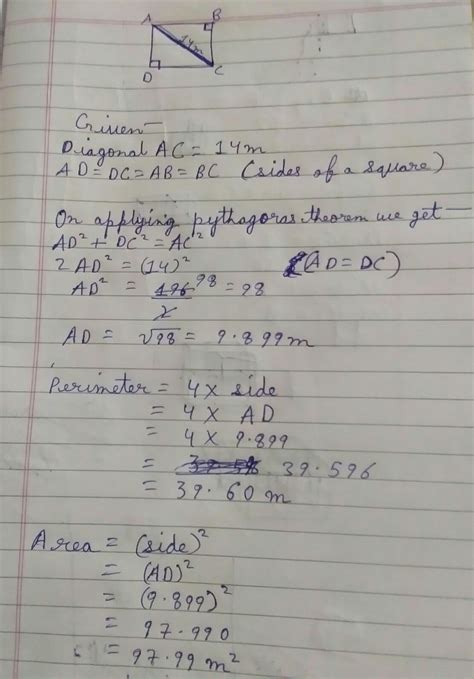 A B
14m
D C
Given-
Diagonal AC = 14m
AD = DC = AB = BC (sides of a square)
On applying pythagoras theorem we get -
AD² + DC² = AC²
2 AD² = (14)² (AD = DC)
AD² = 196 98 = 98
2
AD = √98 = 9.899m
Perimeter = 4 × side
= 4 × AD
= 4 × 9.899
= 39.596
= 39.60 m
Area = (side)²
= (AD)²
= (9.899)²
= 97.990
= 97.99 m²